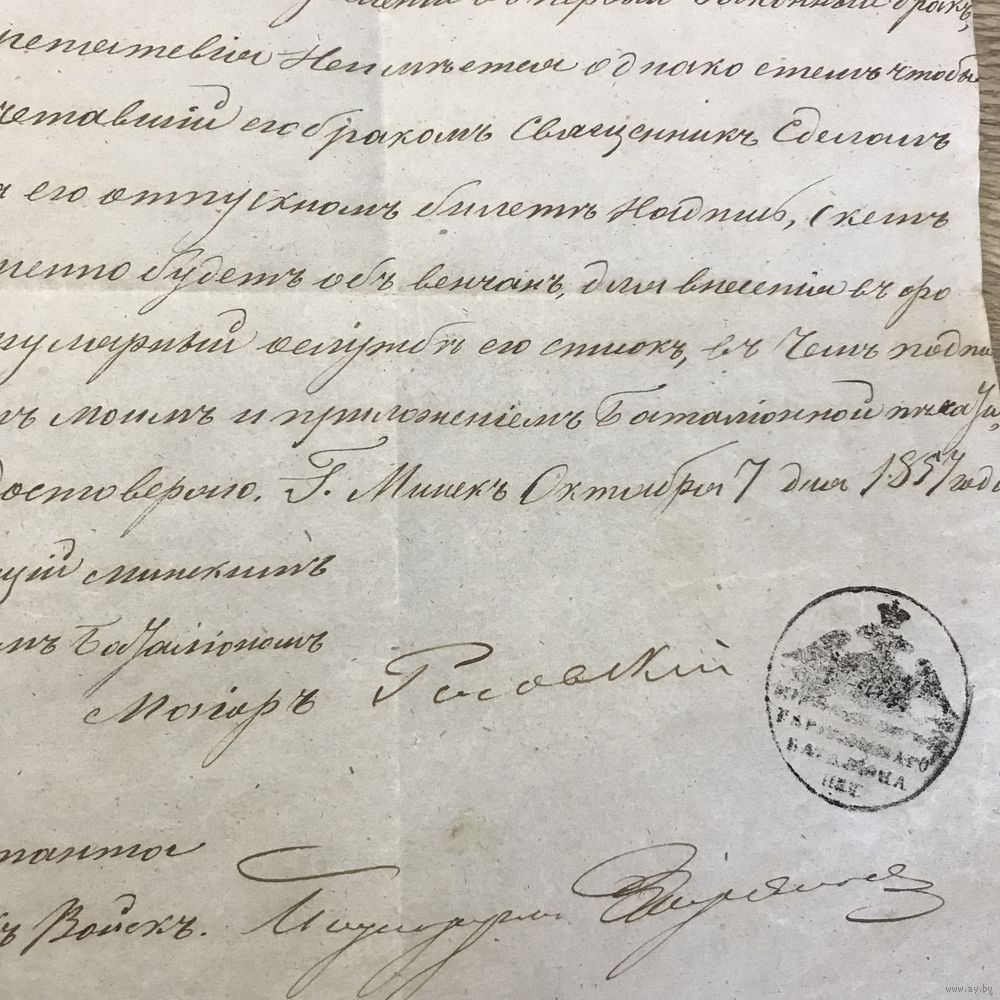 первый законный бракъ,
петатствія Неимѣется однако стемъ чтобы
четавшій его бракомъ Священникъ Сделалъ
его отпускномъ билетѣ Надпись, Скемъ
менно будетъ объ венчанъ, для внесенія въ фо
мулярный ослужбѣ его списокъ, въ Чемъ подпи
мъ моимъ и приложеніемъ Баталіонной печати,
достоверяю. Г. Минскъ Октября 7 дня 1857 года
щій минскимъ
мъ Баталіономъ
Маіоръ
ГАРНИЗОННАГО
БАТАЛІОНА
ПЕЧ.
танта
ъ Войскъ.
www.ay.by